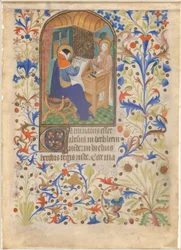 Cum natus esset
ihesus in bethleem
iude in diebus
herodis regis ecce